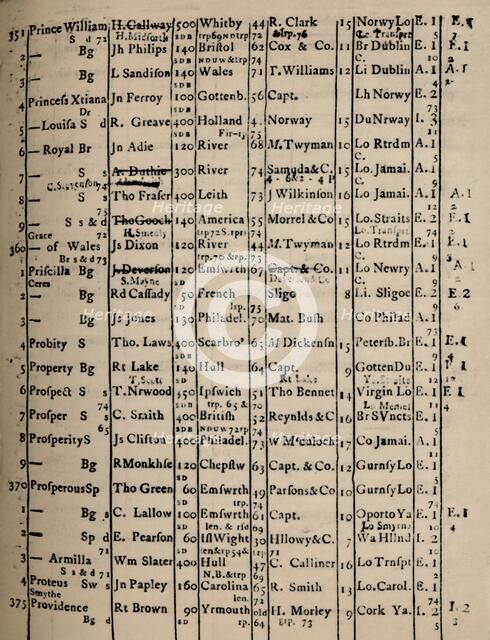 351 Prince William H. Callway 500 Whitby 44 R. Clark 15 Norwy Lo E. 1 E. 1
S s d 72 H. Midforth SDB trp69NDtrp 72 Srp. 76 Lo Transpt 5
2 — Bg Jh Philips 140 Bristol 62 Cox & Co. 11 Br Dublin E. 1 E. 1
SDB NDUW & trp 74 C.
3 — Bg L Sandison 140 Wales 71 T. Williams 12 Li Dublin A. 1 A. 1
4 Princess Xtiana Jn Ferroy 100 Gottenb. 56 Capt. Lh Norwy E. 2
Dr SDB 73
5 —Louisa S d R. Greave 400 Holland 4 Norway 15 DuNrway I. 3
SDB Fir 75
6 —Royal Br Jn Adie 120 River 68 M. Twyman 10 Lo Rtrdm A. 1
C.
7 — S s A. Duthie 300 River 74 Samuda & C. 15 Lo Jamai. A. 1
C. Stevenson 74 C.
8 — S s Tho Fraser 400 Leith 73 J Wilkinson 16 Lo Jamai. A. 1 A. 1
75
9 — S s & d Tho Gooch 140 America 55 Morrel & Co 15 Lo. Straits E. 2 E. 1
Grace 72 H. Smealy trp 72 S. rpr 74 Lo Transpt 73
360 — of Wales Js Dixon 120 River 44 M. Twyman 10 Lo Rtrdm E. 1
Br s & d 73 trp. 70 & 73 C.
1 Priscilla Bg J. Deverson 120 Emswrth 67 Capt. & Co. 11 Lo Newry A. 1 A. 1
Ceres S. Mayne C.
2 — Bg Rd Cassady 50 French Sligo 8 Li. Sligoe E. 2 E. 2
SD trp. 75
3 — Bg Js Jones 130 Philadel. 70 Mat. Bush Co Philad A. 1
73
4 Probity S Tho. Laws 400 Scarbro' 65 M Dickensn 15 Petersb. Br E. 1 E. 1
SDB
5 Property Bg Rt Lake 140 Hull 64 Capt. 9 GottenDu E. 1
T. Scott SDB Rt Lake 12
6 Prospect S s T. Nrwood 550 Ipswich 51 Tho Bennet 14 Virgin Lo E. 1 E 1
74 SDB trp. 65 & 70 Lo Memel
7 Prosper S s C. Sraith 400 British 52 Reynlds & C 16 Br SVncts E. 1
65 SDB NDUW 72 rp 74
8 Prosperity S Js Clifton 400 Philadel. 73 W McculocH 17 Co Jamai. A. 1
9 — Bg R Monkhse 120 Chepstw 63 Capt. & Co. 12 Gurnsy Lo E. 1
SD
370 Prosperous Sp Tho Green 60 Emswrth 49 Parsons & Co 10 Gurnsy Lo E. 1
SD trp 74
1 — Bg s C. Lallow 100 Emswrth 61 Capt. 10 Oporto Ya. E. 1 E. 1
SD len. & rsd 69 Lo Smyrna
2 — Sp d E. Pearson 60 IslWight 30 Hllowy & C 7 Wa Hllnd I. 2
SD len & rp 54 & trp 71
3 — Armilla Wm Slater 400 Hull 47 C. Calliner 16 Lo Trnspt E. 1
S s & d 71 SD N.B. & trp 69
4 Proteus Sw s Jn Papley 160 Carolina 65 R. Smith 13 Lo. Carol. E. 1
Smythe len. 72
375 Providence Rt Brown 90 Yrmouth old H. Morley 9 Cork Ya. I. 2 I. 2
Bg d SD rp. 64 Srp. 73 5